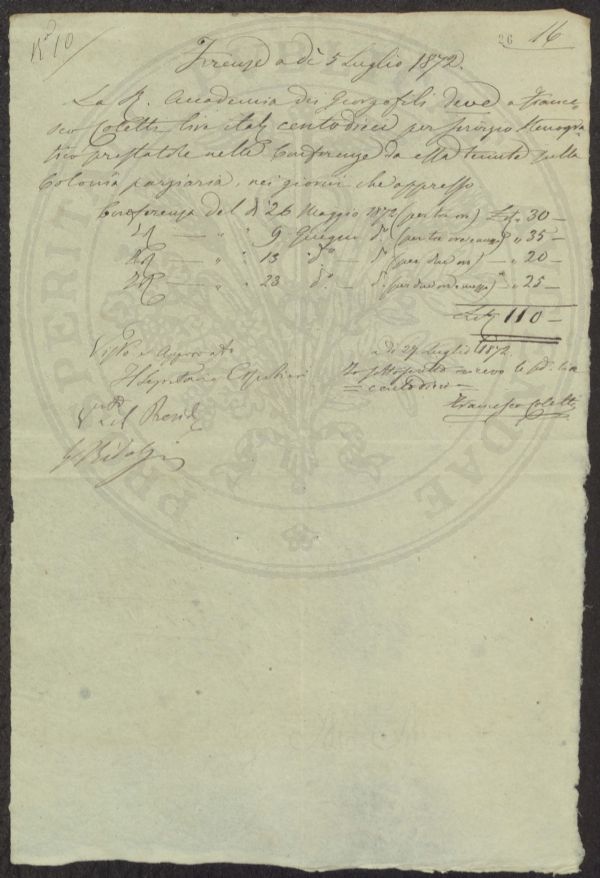 N.º 10
26 16
Firenze a dì 5 Luglio 1872.
La R. Accademia dei Georgofili deve a France
sco Coletti lire ital. centodieci per servizio stenogra
fico prestatole nelle Conferenze da essa tenute sulla
Colonia parziaria, nei giorni che appresso
Conferenza del dì 26 Maggio 1872 (per tre ore) Lit. 30 —
Id. — " " 9 Giugno d.º (per tre ore e mezzo) " 35 —
Id. — " " 13 d.º — d.º (per due ore) — " 20 —
Id. — " " 23 d.º — d.º (per due ore e mezzo) " 25 —
Lit. 110 —
Visto e Approvato
Il Segretario
Il Presid.
Ridolfi
A dì 27 Luglio 1872.
Io sottoscritto ricevo le sud.e lire
centodieci —
Francesco Coletti